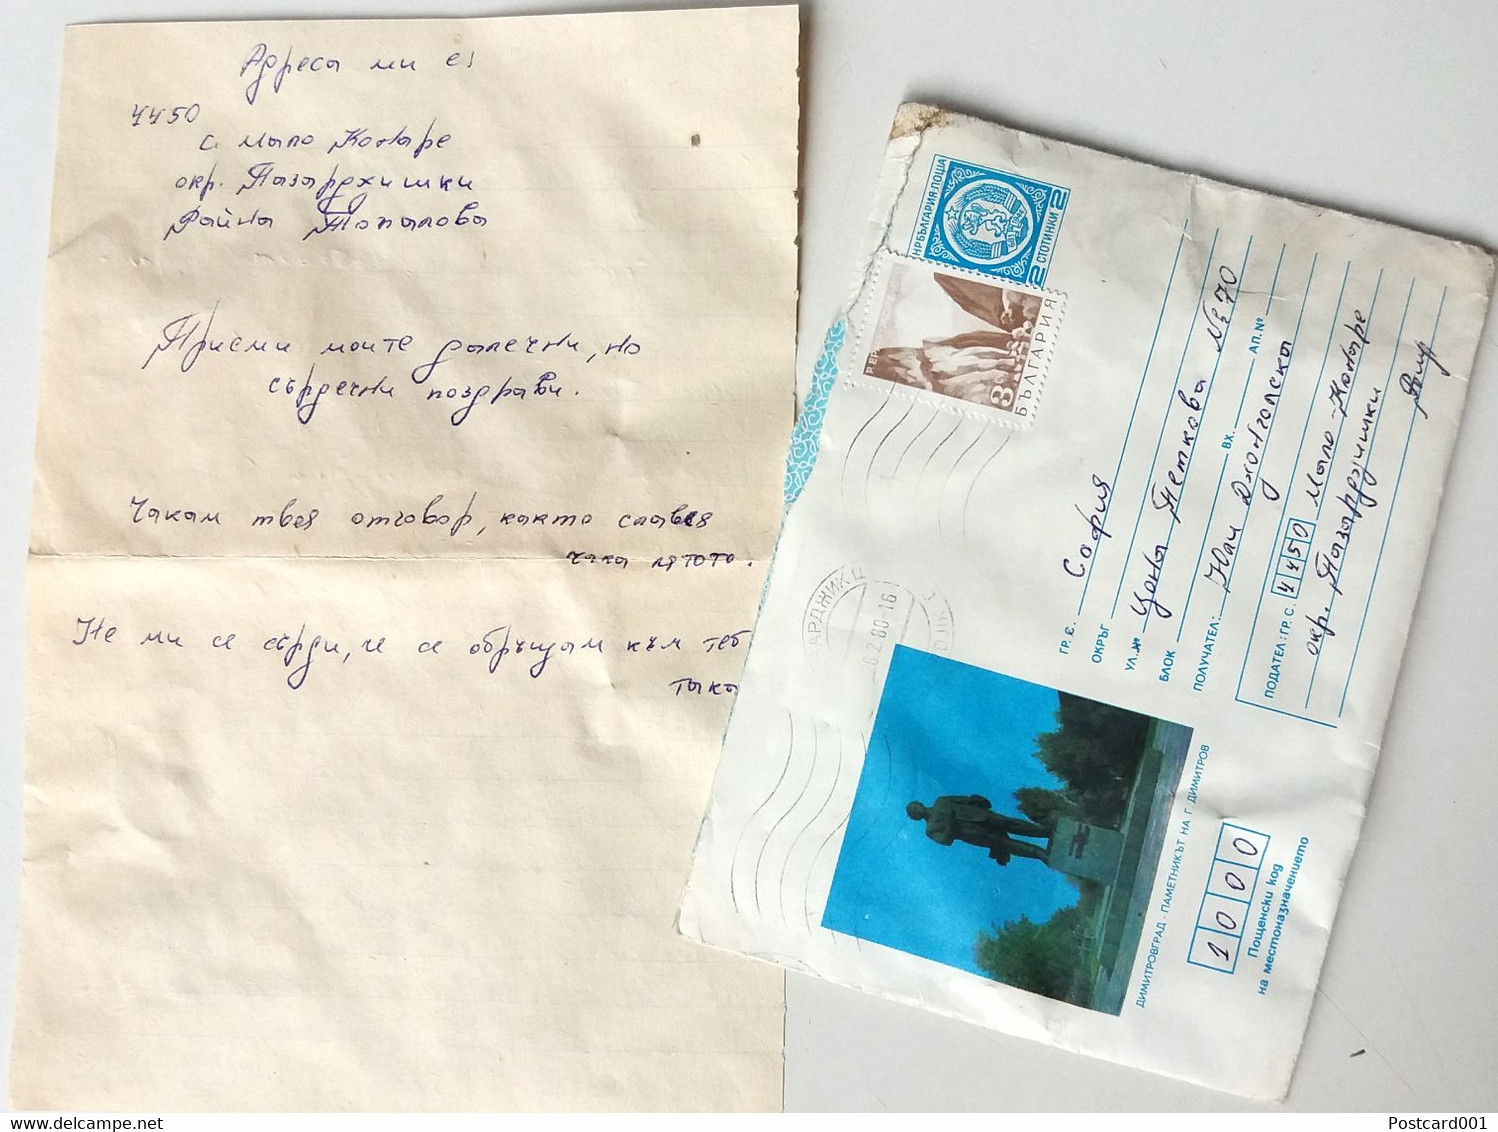 Адреса ми е:
4450
с. Мало Конаре
окр. Пазарджишки
Райна Топалова
Приеми моите далечни, но
сърдечни поздрави.
Чакам твоя отговор, както славея
чака лятото.
Не ми се сърди, че се обръщам към теб
така
НРБЪЛГАРИЯ·ПОЩА
2 СТОТИНКИ 2
БЪЛГАРИЯ
3
АРДЖИК Ц
6.2.80-16
ГР. С. София
ОКРЪГ
УЛ. Ж Цона Петкова № 70
БЛОК ВХ. АП. №
ПОЛУЧАТЕЛ: Юли Джонголска
ПОДАТЕЛ: ГР. С. 4450 Мало-Конаре
окр. Пазарджишки
ДИМИТРОВГРАД - ПАМЕТНИКЪТ НА Г. ДИМИТРОВ
1000
Пощенски код
на местоназначението
Postcard001